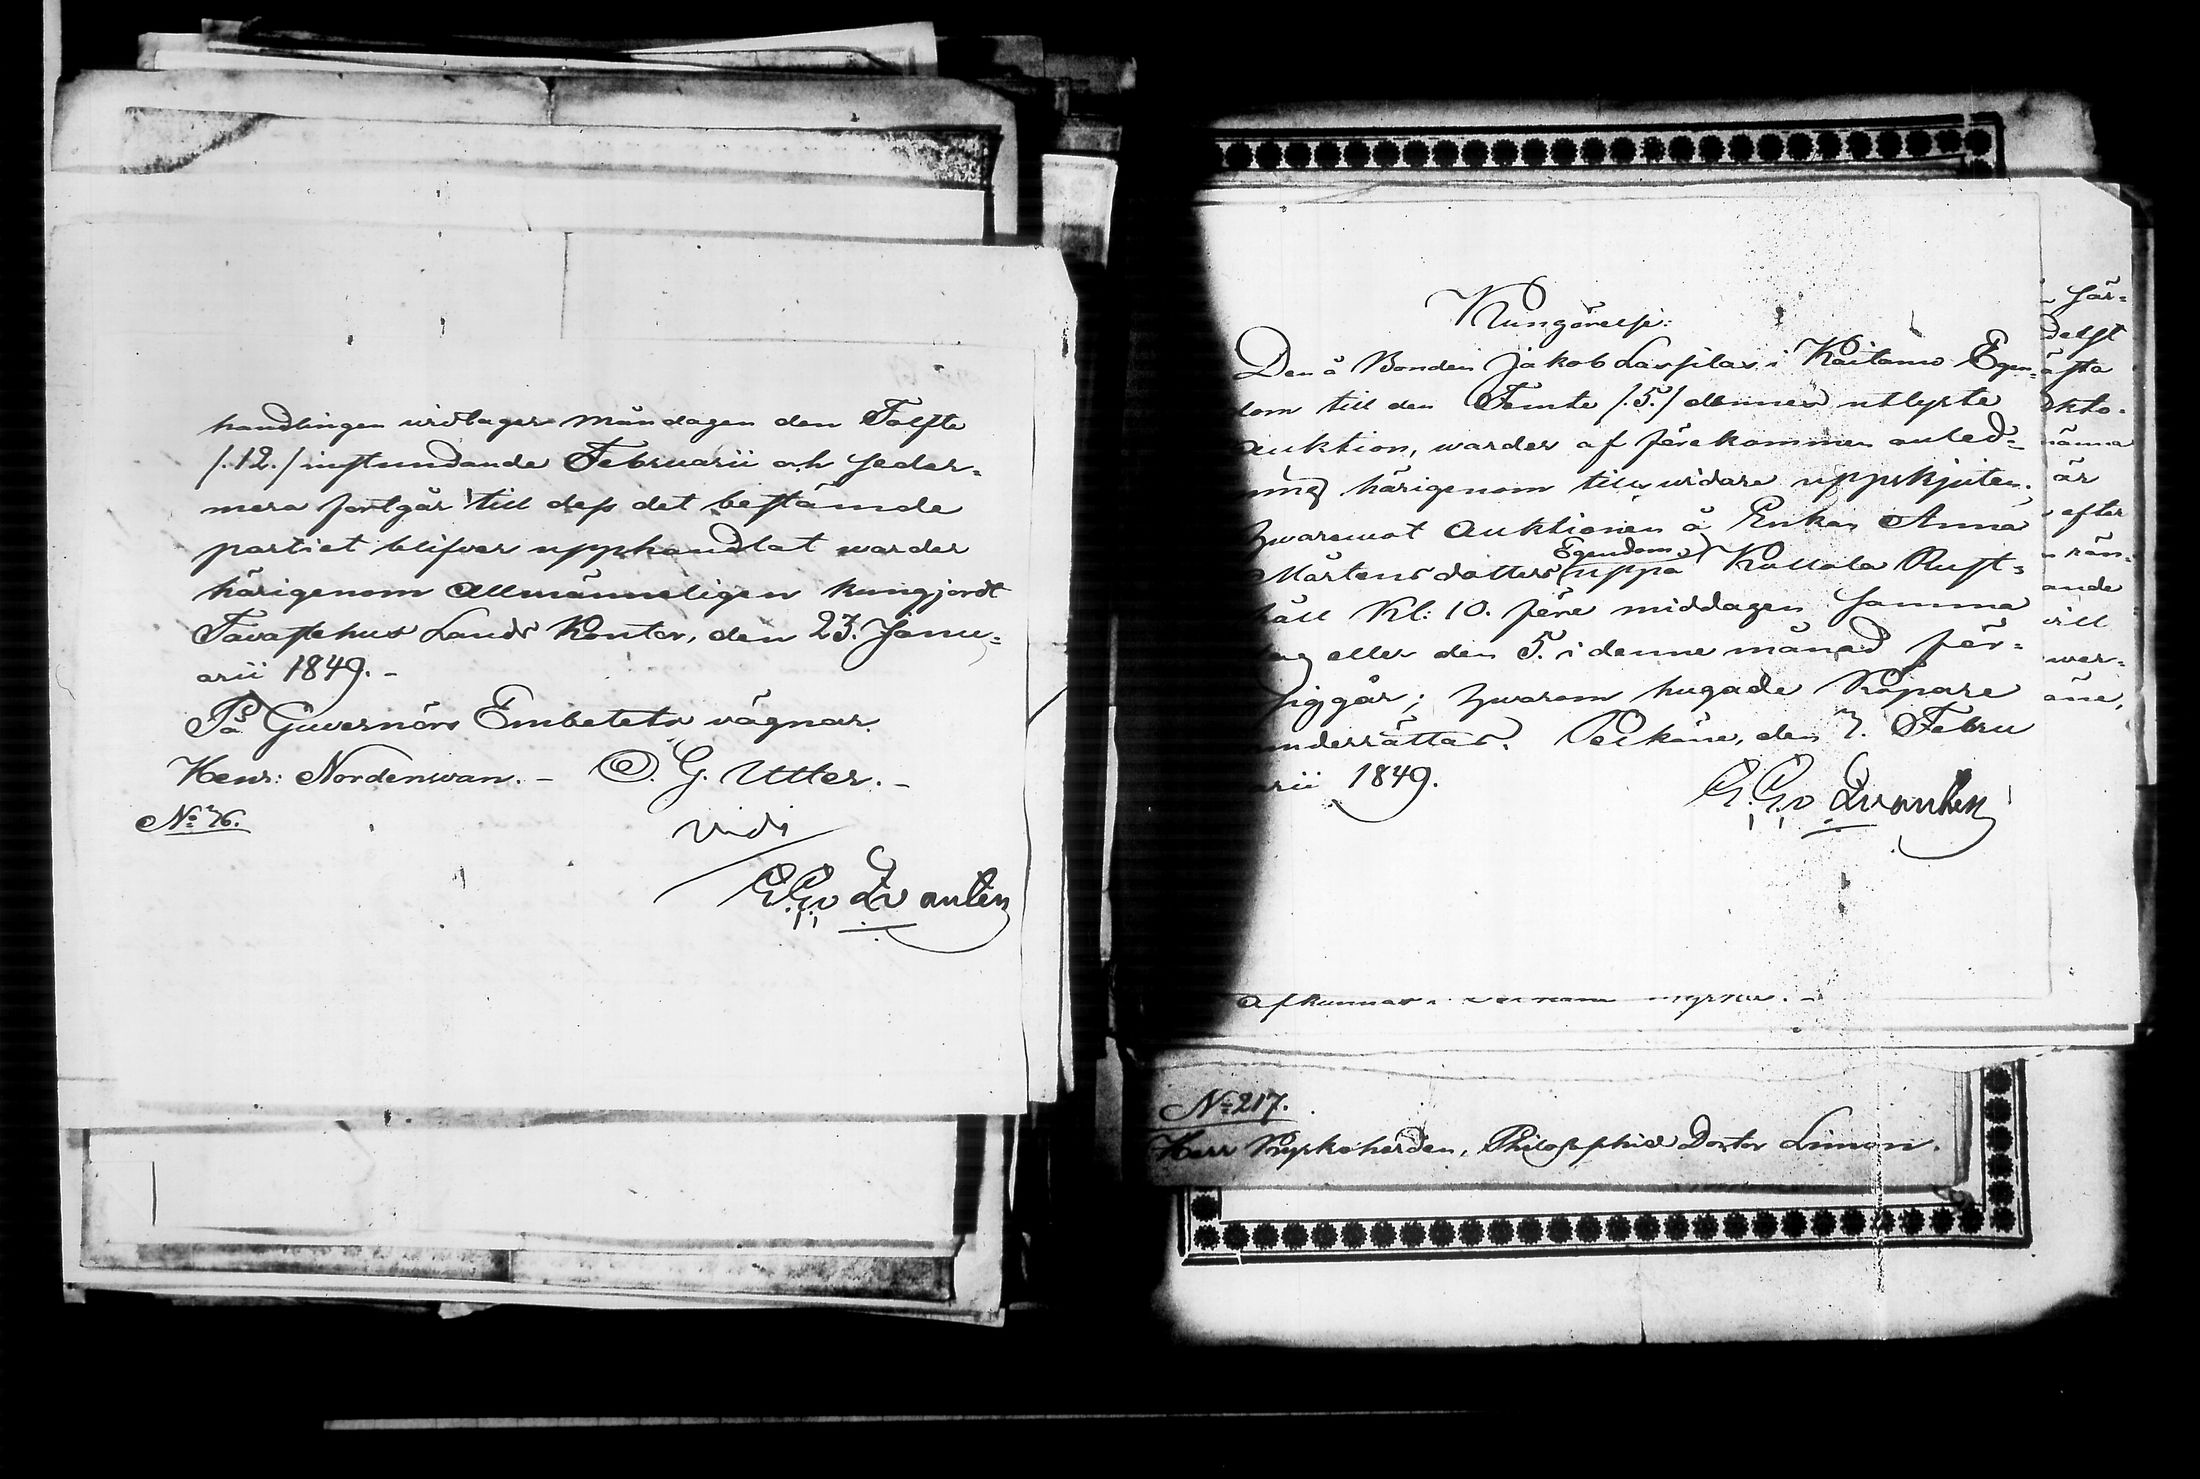 handlingen vidtager måndagen den Tolfte
/.12./ instundande Februarii och seder-
mera fortgår till dess det bestämde
partiet blifver upphandlat warder
härigenom Allmänneligen kungjordt
Tavastehus Lands Kontor, den 23. Janu-
arii 1849. -
På Guvernörs Embetets vägnar.
Henr: Nordenswan. - O. G. Utter. -
No 76.
Vidi
E. G. v Qvanten
Kungörelse:
Den å Bonden Jakob Laspilas i Kaitamo Egen-
dom till den Femte /.5./ dennes utlyste
auktion, warder af förekommen anled-
ning härigenom till widare uppskjuten.
hwaremot auktionen å Enkan Anna
Mårtensdotters Egendom uppå Kollola Rust-
håll Kl: 10. före middagen samma
dag eller den 5. i denne månad för-
siggår; hwarom hugade Köpare
underrättas. Pelkäne, den 3. Febru
arii 1849.
E. G. v Qvanten
för-
delst
åsta
okto.
nämna
är
efter
rän-
ande
vill
wer-
äne,
No 217.
Herr Kyrkoherden, Philosophie Doctor Limon.